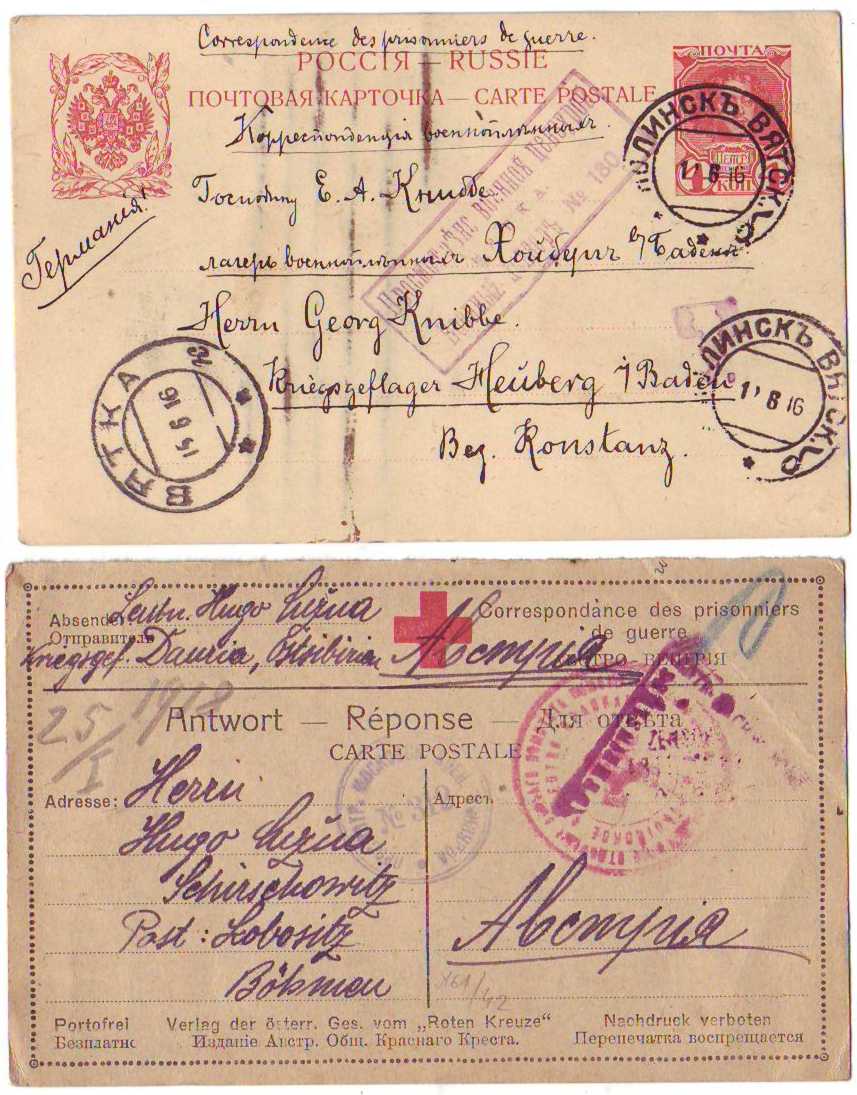 Correspondence des prisonniers de guerre.
РОССІЯ — RUSSIE
ПОЧТОВАЯ КАРТОЧКА — CARTE POSTALE
ПОЧТА
4 КОП
Корреспонденція военноплѣнныхъ.
Господину Е. А. Книббе
Германія!
лагерь военноплѣнныхъ Хойбергъ / Баденъ.
Herrn Georg Knibbe.
Kriegsgeflager Heuberg i/ Baden
Bez. Konstanz.
№ 180
НОЛИНСКЪ ВЯТСК.
11 6 16
ЛИНСКЪ ВЯТСК.
11 6 16
ВЯТКА
15 6 16
Absender
Отправитель
Leutn. Hugo
Kriegsgef. Dauria, Ostsibirien
Correspondance des prisonniers
de guerre
ВЕНГРІЯ
Австрія
25/I 1918
Antwort — Réponse — Для отвѣта
CARTE POSTALE
Adresse:
Адресъ
Herrn
Hugo
Schirschowitz
Post: Lobositz
Böhmen
Австрія
Portofrei
Безплатно
Verlag der österr. Ges. vom „Roten Kreuze“
Изданіе Австр. Общ. Краснаго Креста.
Nachdruck verboten
Перепечатка воспрещается